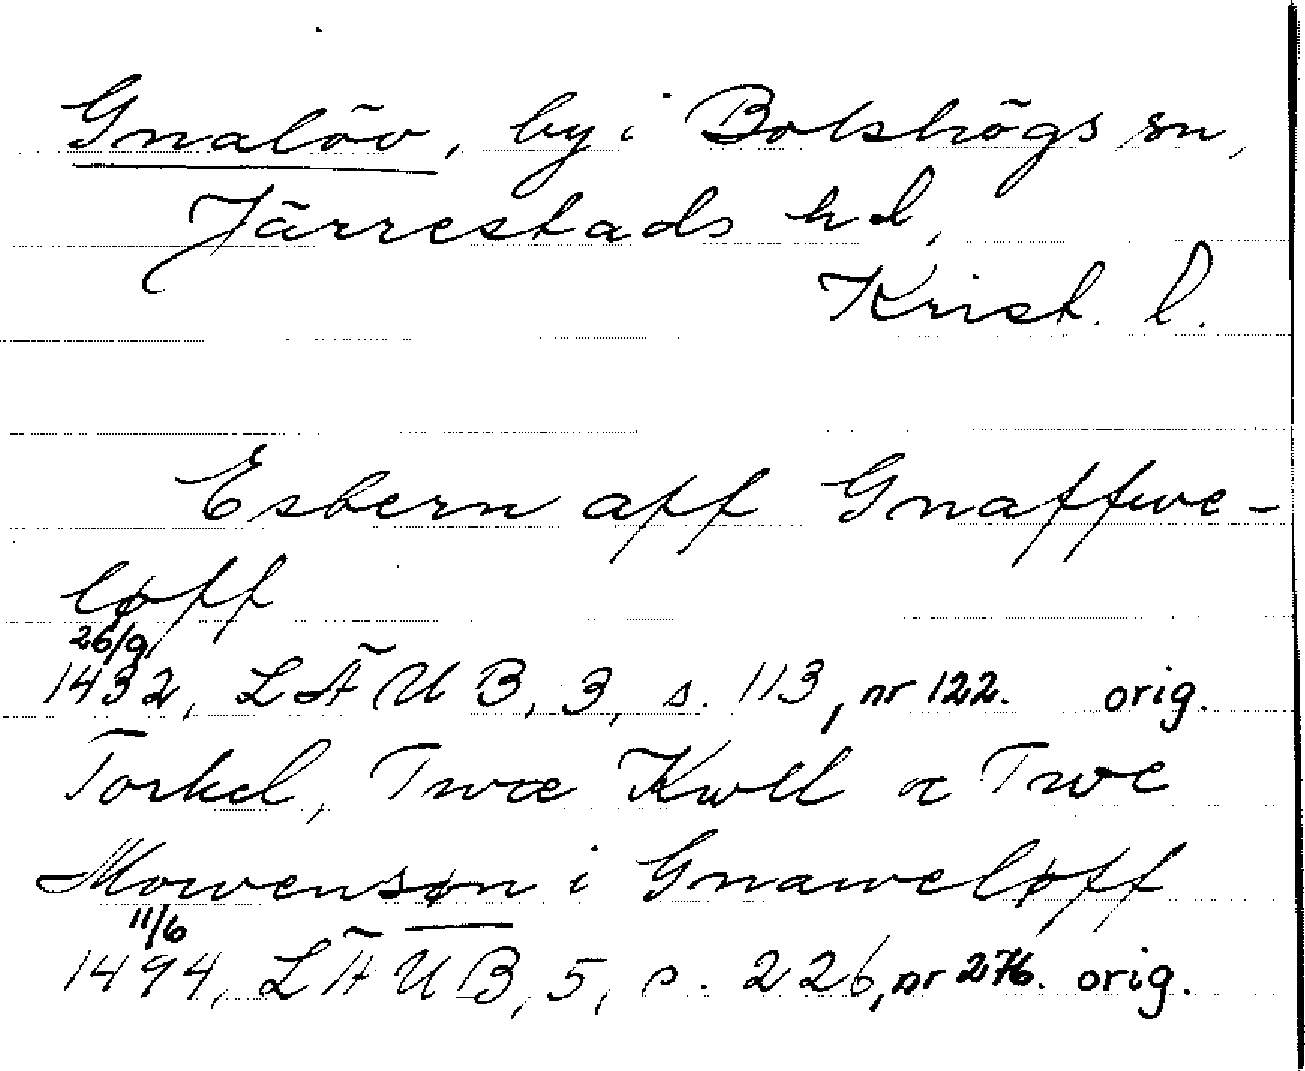 Gnalöv, by i Bolshögs sn,
Järrestads hd,
Krist. l.
Esbern aff Gnaffwe-
løff
26/9
1432, LÄUB, 3, s. 113, nr 122. orig.
Torkel, Twæ Kwll æ Twe
Mowensøn i Gnaweløff
11/6
1494, LÄUB, 5, s. 226, nr 276. orig.